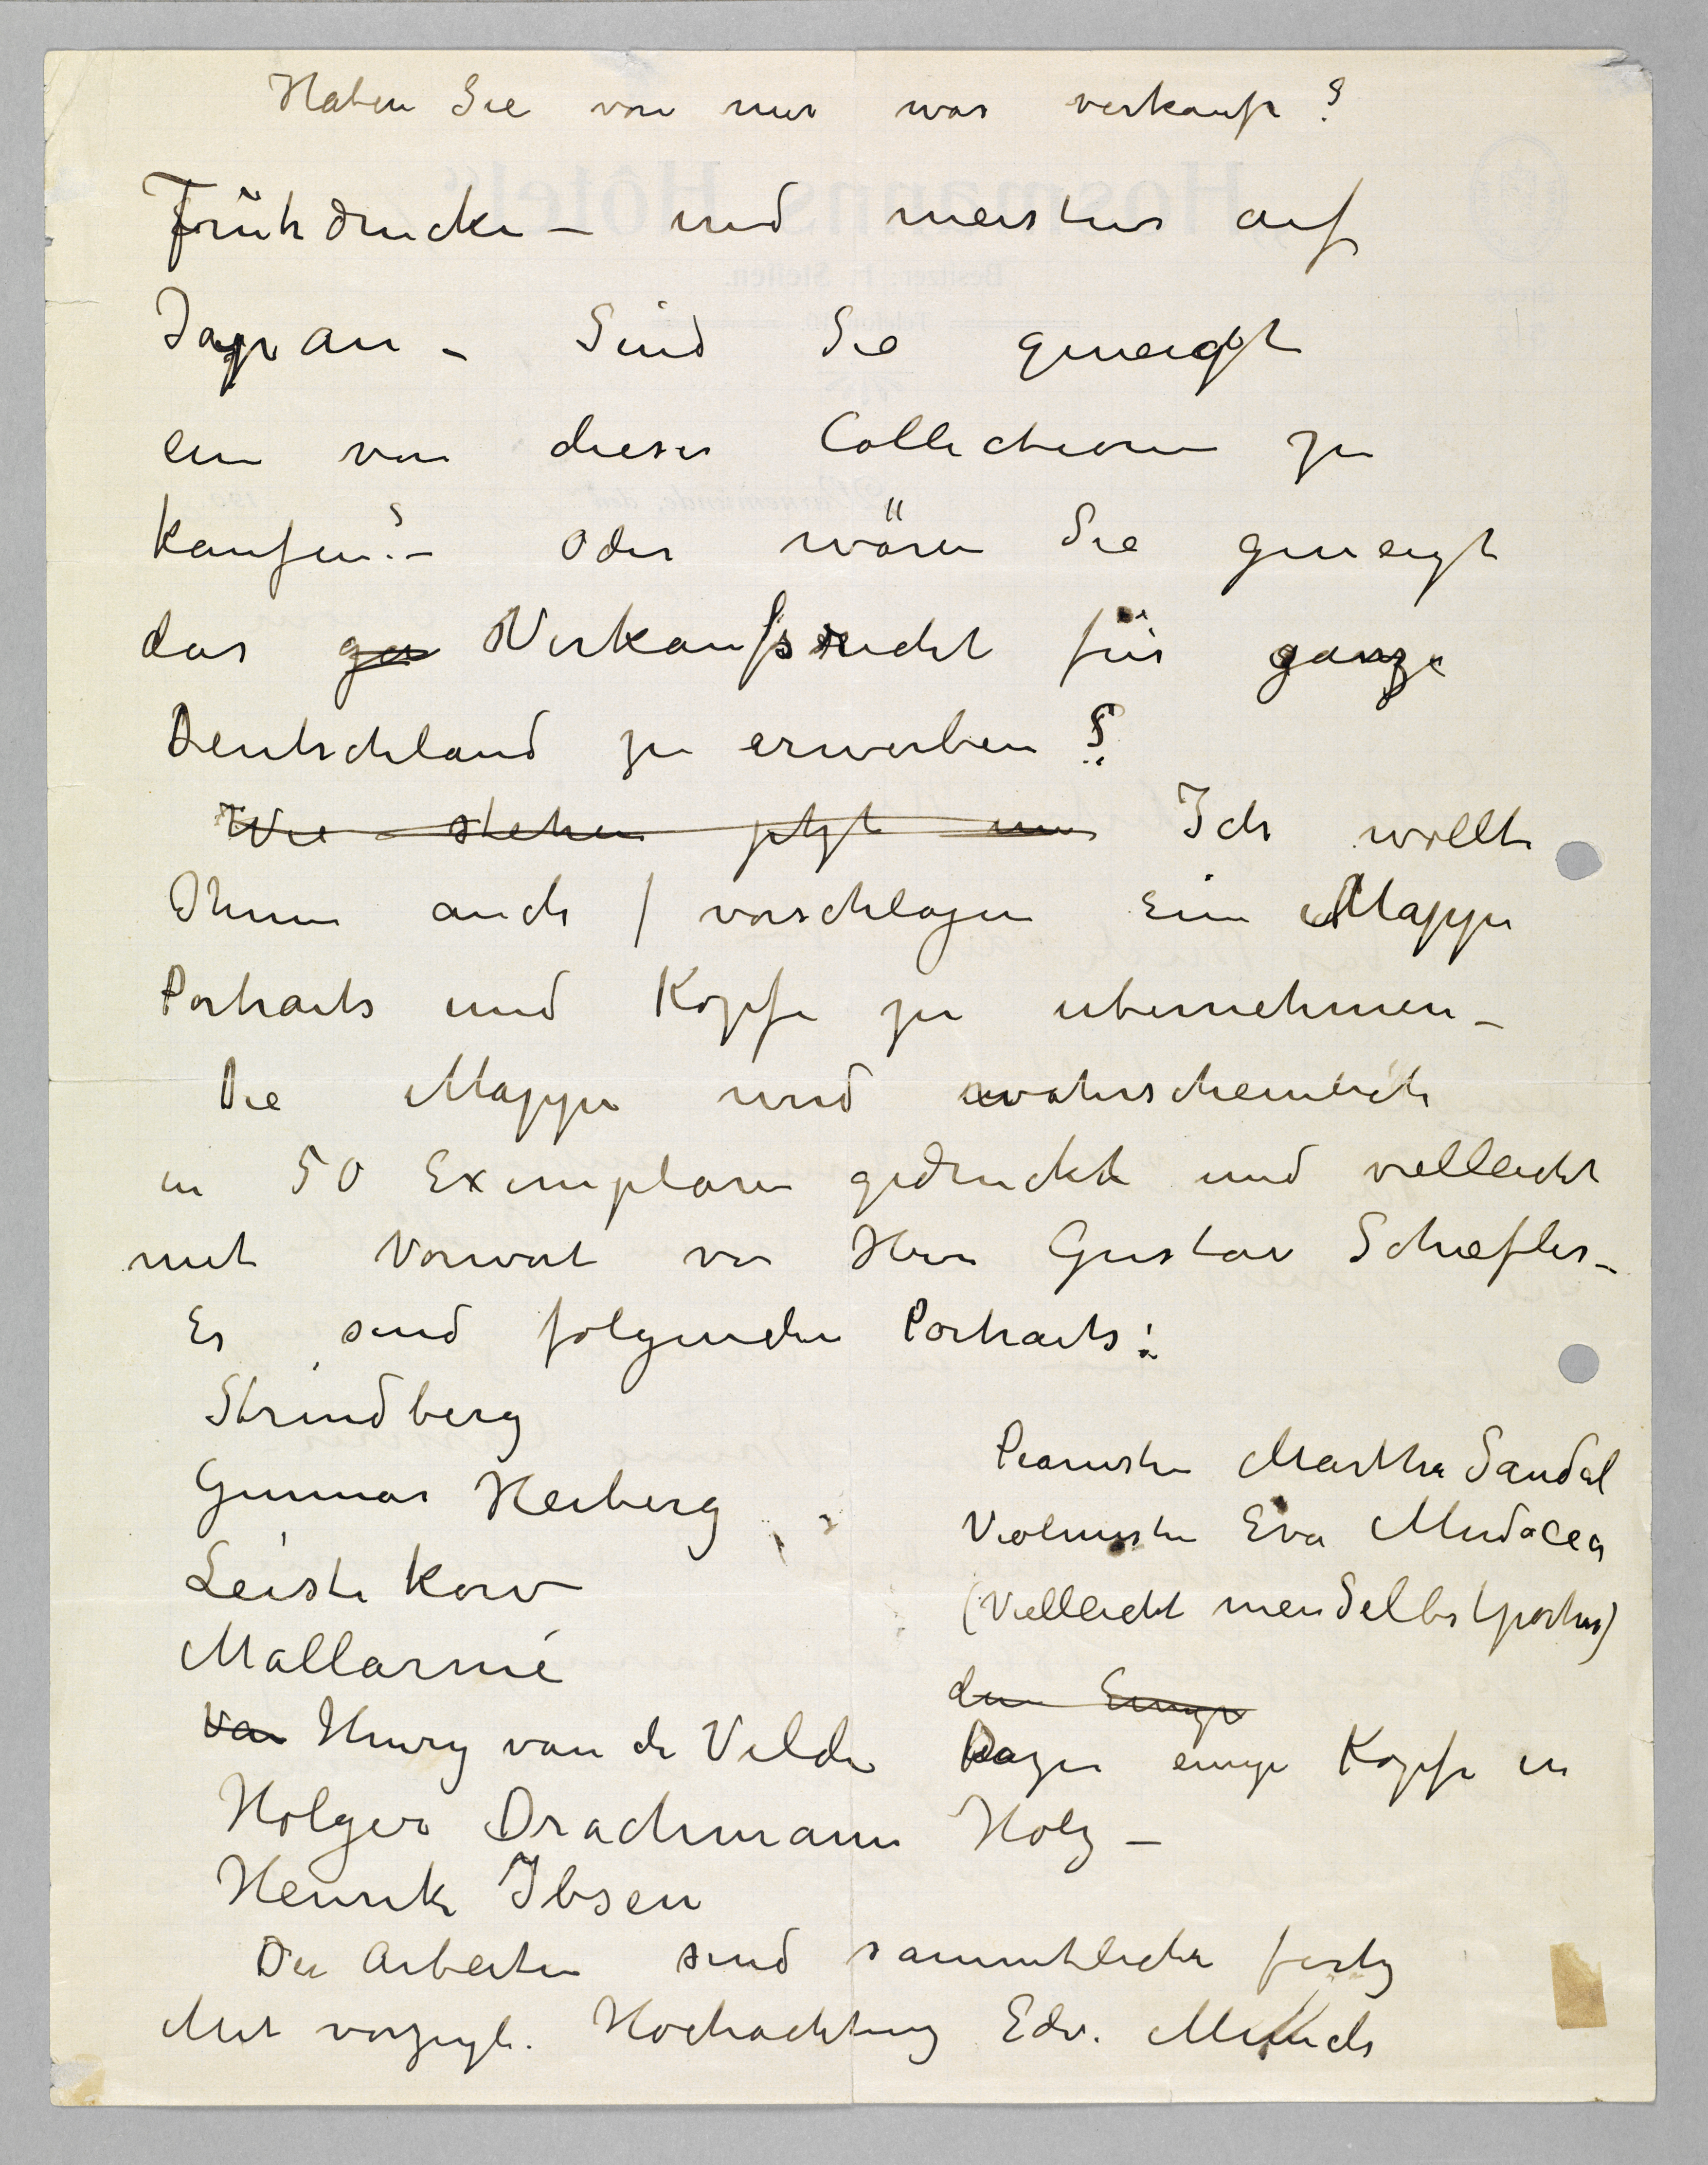 Haben Sie von mir was verkauft?
Frühdrucke – und meistens auf
Japan – Sind Sie geneigt
ein von dieser Collectionen zu
kaufen? – Oder wären Sie geneigt
das ga Verkaufsrecht für ganze
Deutschland zu erwerben?
Wie stehen jetzt Ich wollte
Ihnen auch / vorschlagen eine Mappe
Portraits und Kopfe zu ubernehmen –
Die Mappe wird wahrscheinlich
in 50 Exemplaren gedruckt und vielleicht
mit Vorwort von Herrn Gustav Schiefler –
Es sind folgenden Portraits:
Strindberg
Gunnar Heiberg
Leistekow
Mallarmé
Van Henry van de Velde
Holger Drachmann
Henrik Ibsen
Pianistin Martha Sandal
Violinistin Eva Mudocca
(Vielleicht mein Selbstportrait)
den Einige
Dazu einige Kopfe in
Holz –
Die Arbeiten sind sammtliche fertig
Mit vorzugl. Hochachtung Edv. Munch